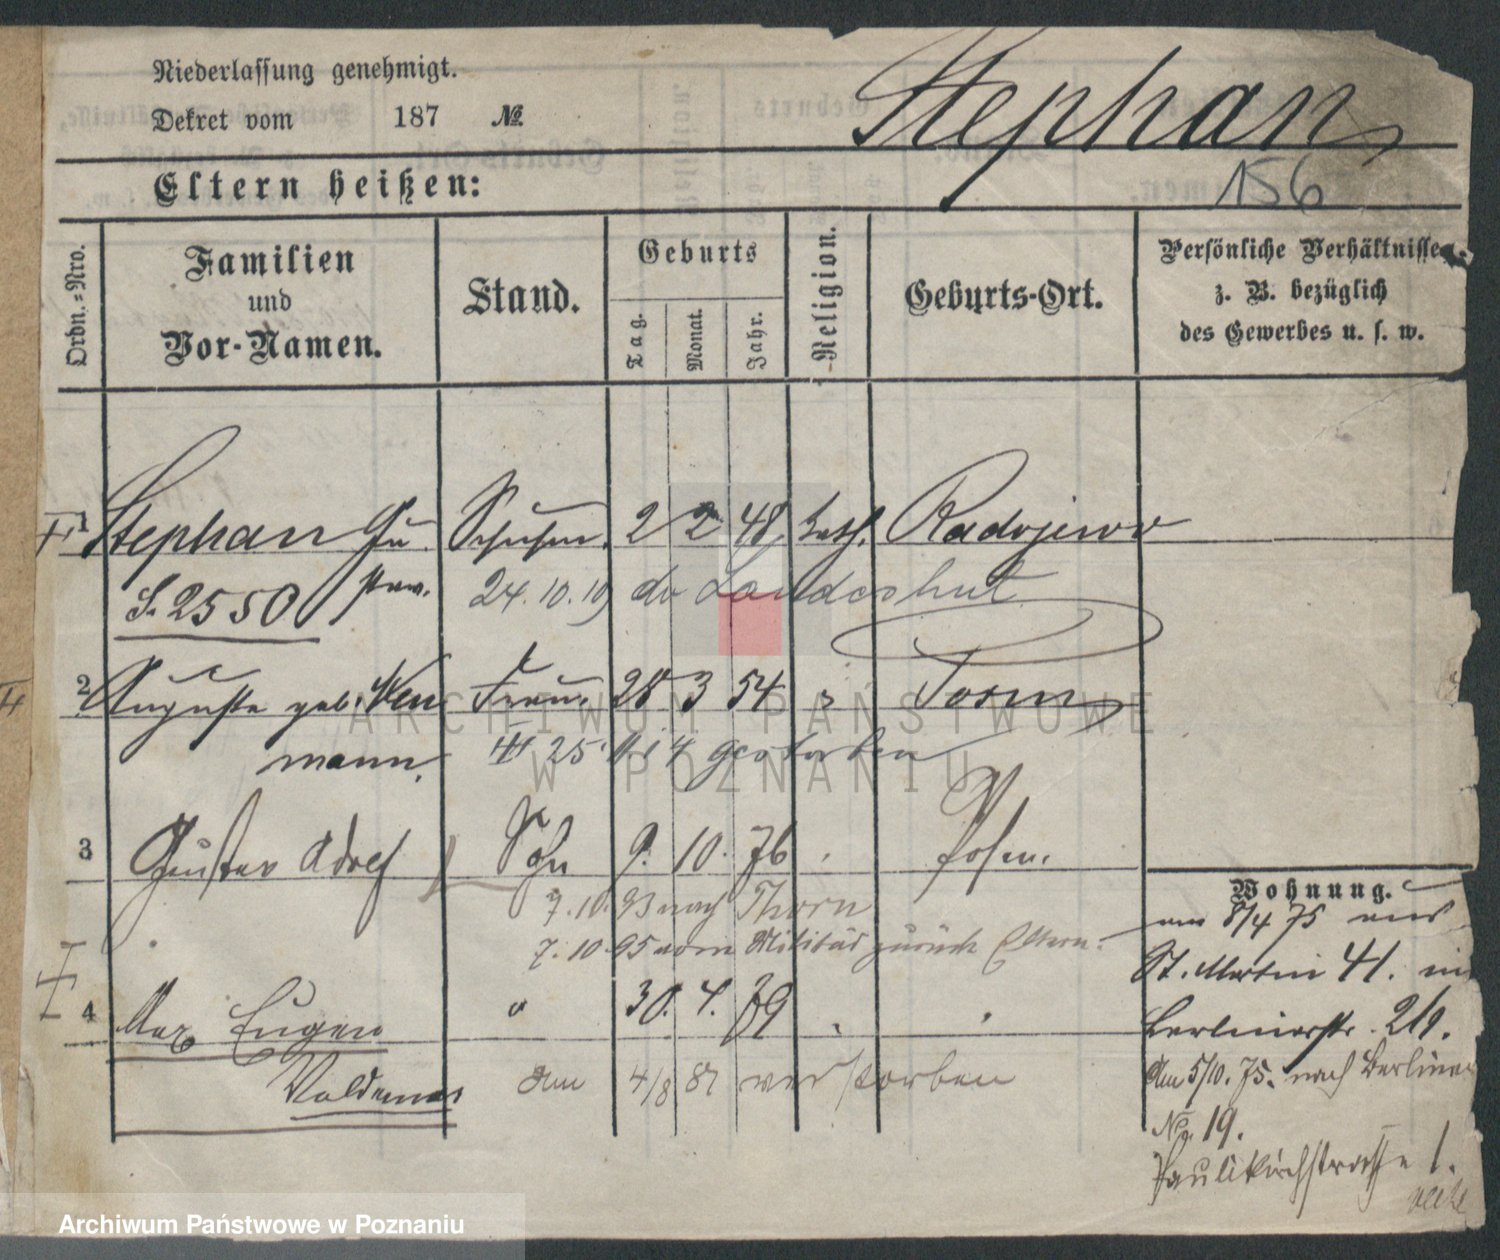 Niederlassung genehmigt.
Dekret vom 187 №
Stephan
156
Eltern heißen:
Ordn.=Nro.
Familien und Vor-Namen.
Stand.
Geburts
Tag.
Monat.
Jahr.
Religion.
Geburts-Ort.
Persönliche Verhältnisse
z. B. bezüglich
des Gewerbes u. s. w.
1 Stephan Gu 2 2 48 kath. Radojewo
S. 2550 stav. 24.10.19 Landeshut
2 Auguste geb. Neu Frau 28 3 54 Posen
mann. 25. 4 gestorben
3 Gustav Adolf Sohn 9. 10. 76 Posen.
7.10.93 nach Thorn
7.10.95 vom Militär zurück Eltern.
4 Max Eugen " 30. 4. 79
Valdemar am 4/8 87 verstorben
Wohnung.
am 8/4 75 aus
St. Martin 41. in
Berlinerstr. 29.
Am 5/10. 75. nach Berliner
No. 19.
Paulikirchstrasse 1.
ARCHIWUM PAŃSTWOWE
W POZNANIU
Archiwum Państwowe w Poznaniu